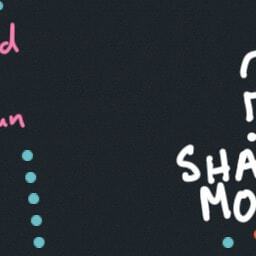 d
un
?
SHA
MO